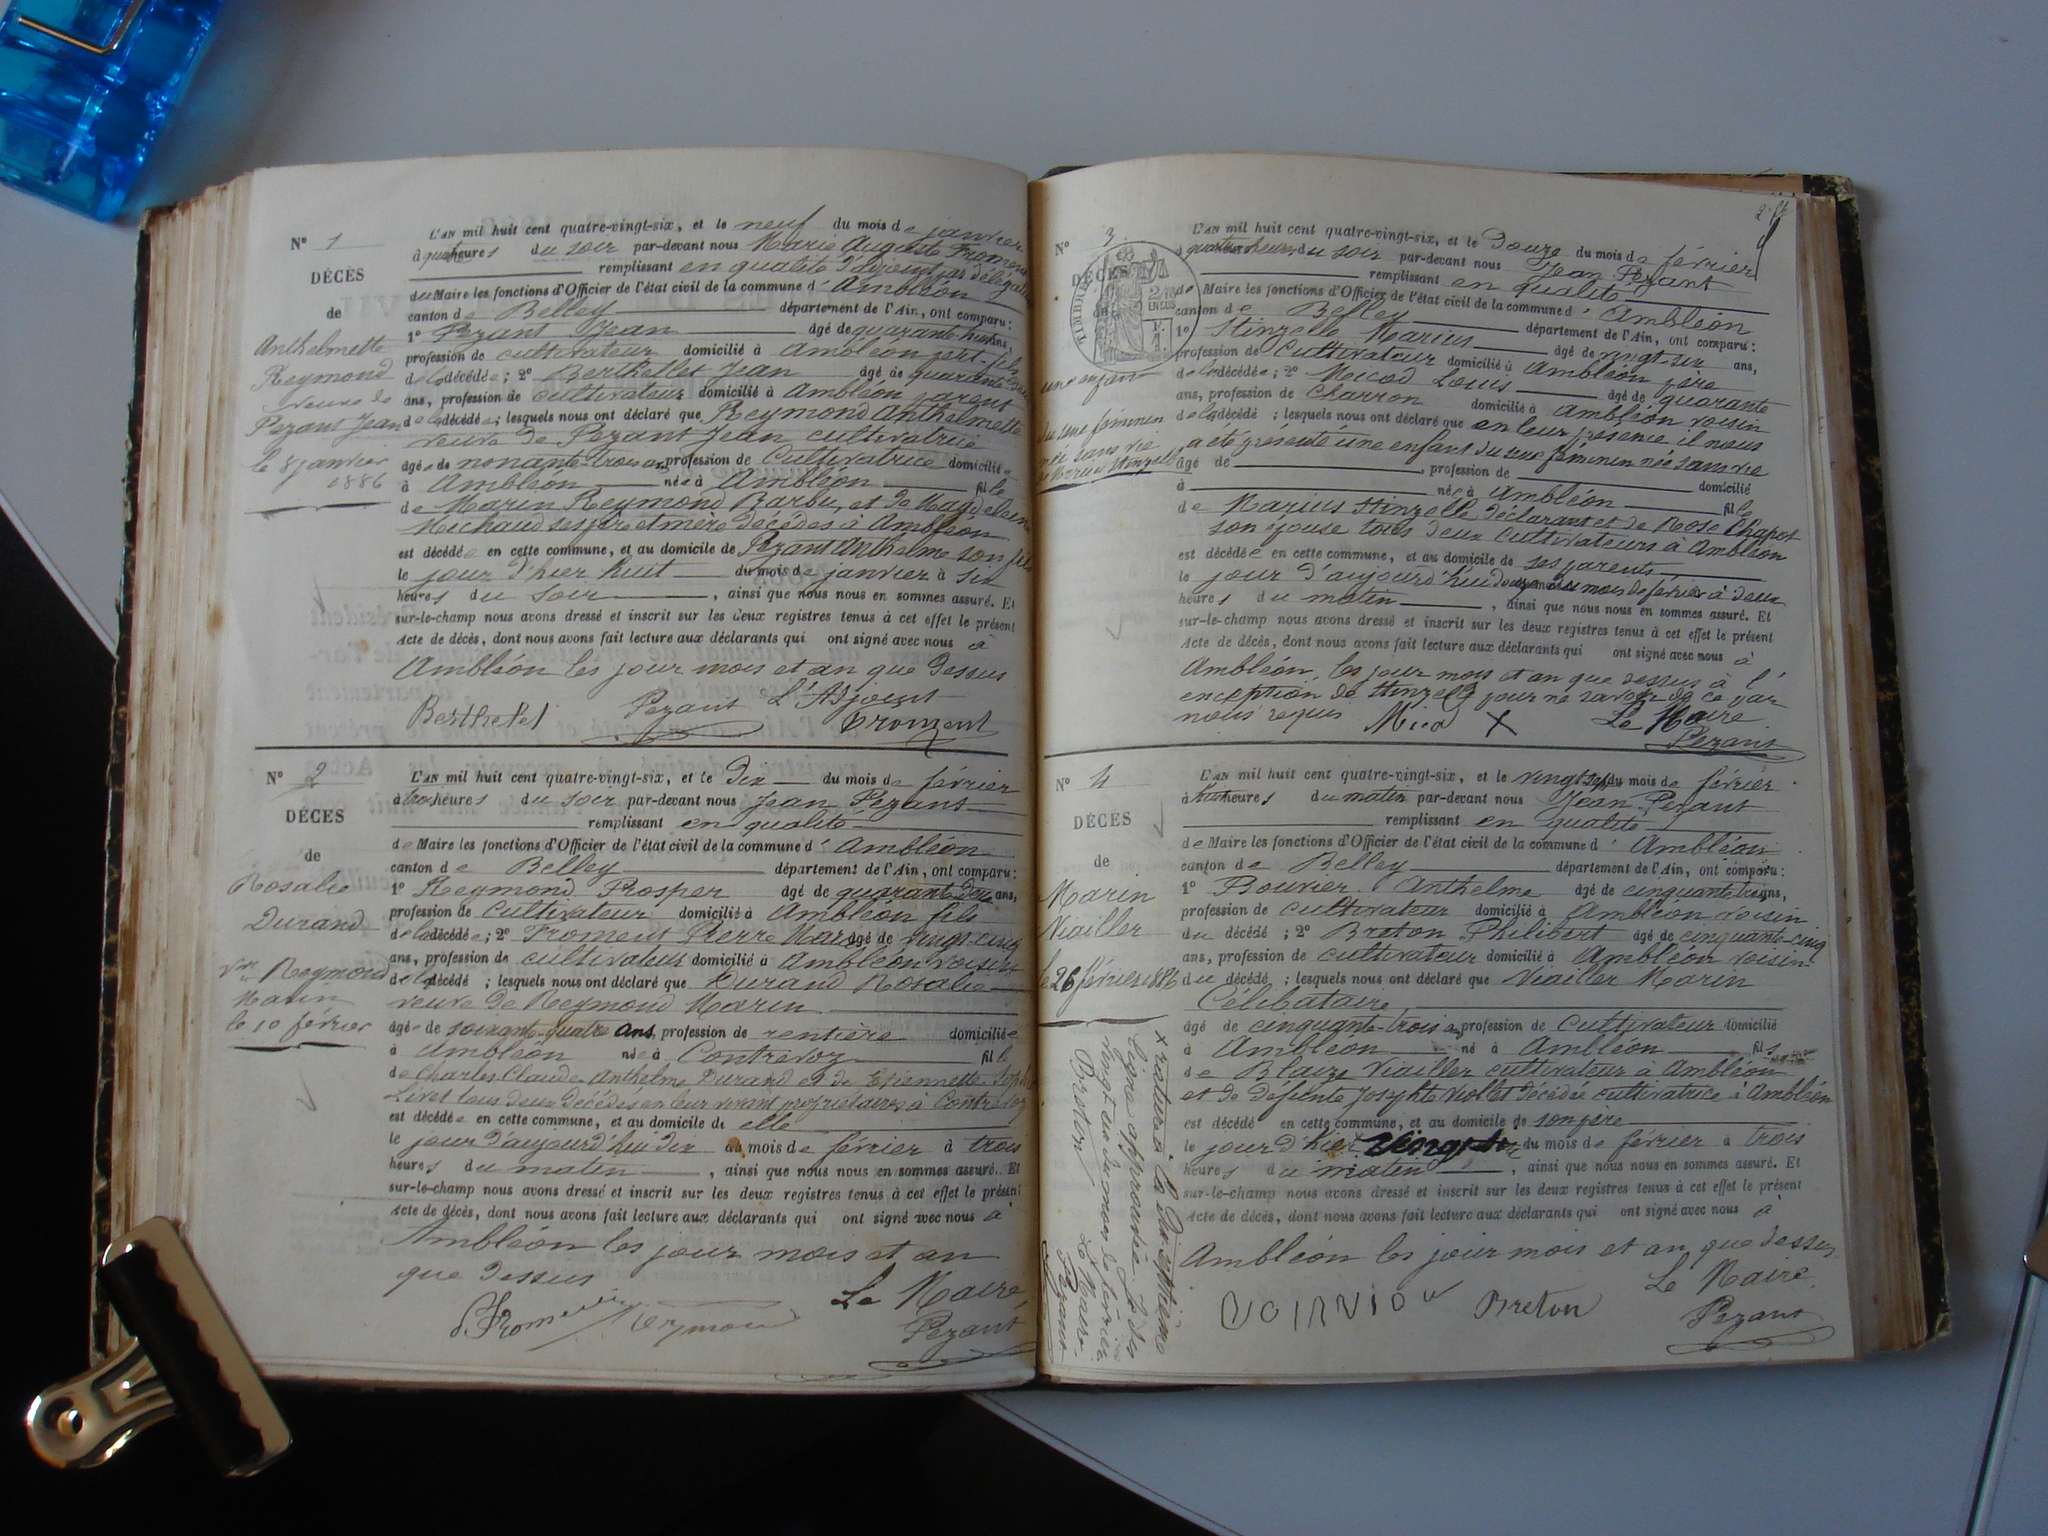 N° 1
DÉCÈS
de
Anthelmette
Reymond
veuve de
Pezant Jean
le 8 janvier
1886
L'AN mil huit cent quatre-vingt-six, et le neuf du mois de janvier
à heures du soir par-devant nous Marie Auguste Froment
remplissant en qualité d'adjoint par délégation
du Maire les fonctions d'Officier de l'état civil de la commune d'Ambléon
canton de Belley département de l'Ain, ont comparu :
1° Pezant Jean âgé de quarante huit ans,
profession de cultivateur domicilié à Ambléon petit-fils
de la décédée ; 2° Berthelet Jean âgé de quarante
ans, profession de cultivateur domicilié à Ambléon parent
de la décédée ; lesquels nous ont déclaré que Reymond Anthelmette
veuve de Pezant Jean cultivatrice
âgée de nonante-trois ans, profession de Cultivatrice domiciliée
à Ambléon née à Ambléon fille
de Marin Reymond Barbu, et de Magdeleine
Michaud ses père et mère décédés à Ambléon
est décédée en cette commune, et au domicile de Pezant Anthelme son fils
le jour d'hier huit du mois de janvier à six
heures du soir , ainsi que nous nous en sommes assuré. Et
sur-le-champ nous avons dressé et inscrit sur les deux registres tenus à cet effet le présent
Acte de décès, dont nous avons fait lecture aux déclarants qui ont signé avec nous à
Ambléon les jour mois et an que dessus
Berthelet Pezant L'Adjoint
Froment
N° 2
DÉCÈS
de
Rosalie
Durand
Vve Reymond
Marin
le 10 février
L'AN mil huit cent quatre-vingt-six, et le dix du mois de février
à trois heures du soir par-devant nous Jean Pezant
remplissant en qualité
de Maire les fonctions d'Officier de l'état civil de la commune d'Ambléon
canton de Belley département de l'Ain, ont comparu :
1° Reymond Prosper âgé de quarante deux ans,
profession de cultivateur domicilié à Ambléon fils
de la décédée ; 2° Froment Pierre Marie âgé de vingt-cinq
ans, profession de cultivateur domicilié à Ambléon voisin
de la décédé ; lesquels nous ont déclaré que Durand Rosalie
veuve de Reymond Marin
âgée de soixante-quatre ans, profession de rentière domiciliée
à Ambléon née à Contrevoz fille
de Charles Claude Anthelme Durand et de Etiennette
Livet tous deux décédés en leur vivant propriétaires à Contrevoz
est décédée en cette commune, et au domicile de elle
le jour d'aujourd'hui dix du mois de février à trois
heures du matin , ainsi que nous nous en sommes assuré. Et
sur-le-champ nous avons dressé et inscrit sur les deux registres tenus à cet effet le présent
Acte de décès, dont nous avons fait lecture aux déclarants qui ont signé avec nous à
Ambléon les jour mois et an
que dessus
Le Maire,
Froment Reymond Pezant
N° 3
DÉCÈS
TIMBRE
une enfant
du sexe féminin
née sans vie
de Marius Stinzelle
L'AN mil huit cent quatre-vingt-six, et le douze du mois de février
à quatre heures du soir par-devant nous Jean Pezant
remplissant en qualité
de Maire les fonctions d'Officier de l'état civil de la commune d'Ambléon
canton de Belley département de l'Ain, ont comparu :
1° Stinzelle Marius âgé de vingt-six ans,
profession de Cultivateur domicilié à Ambléon père
de la décédée ; 2° Micod Louis âgé de quarante
ans, profession de Charron domicilié à Ambléon voisin
de la décédé ; lesquels nous ont déclaré que en leur présence il nous
a été présenté une enfant du sexe féminin née sans vie
âgé de , profession de
à domicilié
née à Ambléon fille
de Marius Stinzelle déclarant et de Rose Chapot
son épouse tous deux cultivateurs à Ambléon
est décédée en cette commune, et au domicile de ses parents
le jour d'aujourd'hui douze du mois de février à deux
heures du matin , ainsi que nous nous en sommes assuré. Et
sur-le-champ nous avons dressé et inscrit sur les deux registres tenus à cet effet le présent
Acte de décès, dont nous avons fait lecture aux déclarants qui ont signé avec nous à
Ambléon, les jour mois et an que dessus à l'
exception de Stinzelle pour ne savoir de ce par
nous requis Micod Le Maire
Pezant
N° 4
DÉCÈS
de
Marin
Viailler
le 26 février 1886
L'AN mil huit cent quatre-vingt-six, et le vingt sept du mois de février
à huit heures du matin par-devant nous Jean Pezant
remplissant en qualité
de Maire les fonctions d'Officier de l'état civil de la commune d'Ambléon
canton de Belley département de l'Ain, ont comparu :
1° Bouvier Anthelme âgé de cinquante trois ans,
profession de cultivateur domicilié à Ambléon voisin
du décédé ; 2° Breton Philibert âgé de cinquante-cinq
ans, profession de cultivateur domicilié à Ambléon voisin
du décédé ; lesquels nous ont déclaré que Viailler Marin
Célibataire
âgé de cinquante-trois ans profession de Cultivateur domicilié
à Ambléon né à Ambléon fils
de Blaize Viailler cultivateur à Ambléon
et de défunte Josephte Viollet décédée cultivatrice à Ambléon
est décédé en cette commune, et au domicile de son père
le jour d'hier vingt-six du mois de février à trois
heures du matin , ainsi que nous nous en sommes assuré. Et
sur-le-champ nous avons dressé et inscrit sur les deux registres tenus à cet effet le présent
Acte de décès, dont nous avons fait lecture aux déclarants qui ont signé avec nous à
Ambléon les jour mois et an que dessus
Le Maire
Breton Pezant
x rature à la dix septième
ligne approuvée
vingt six du mois de février
Breton Le Maire
Pezant